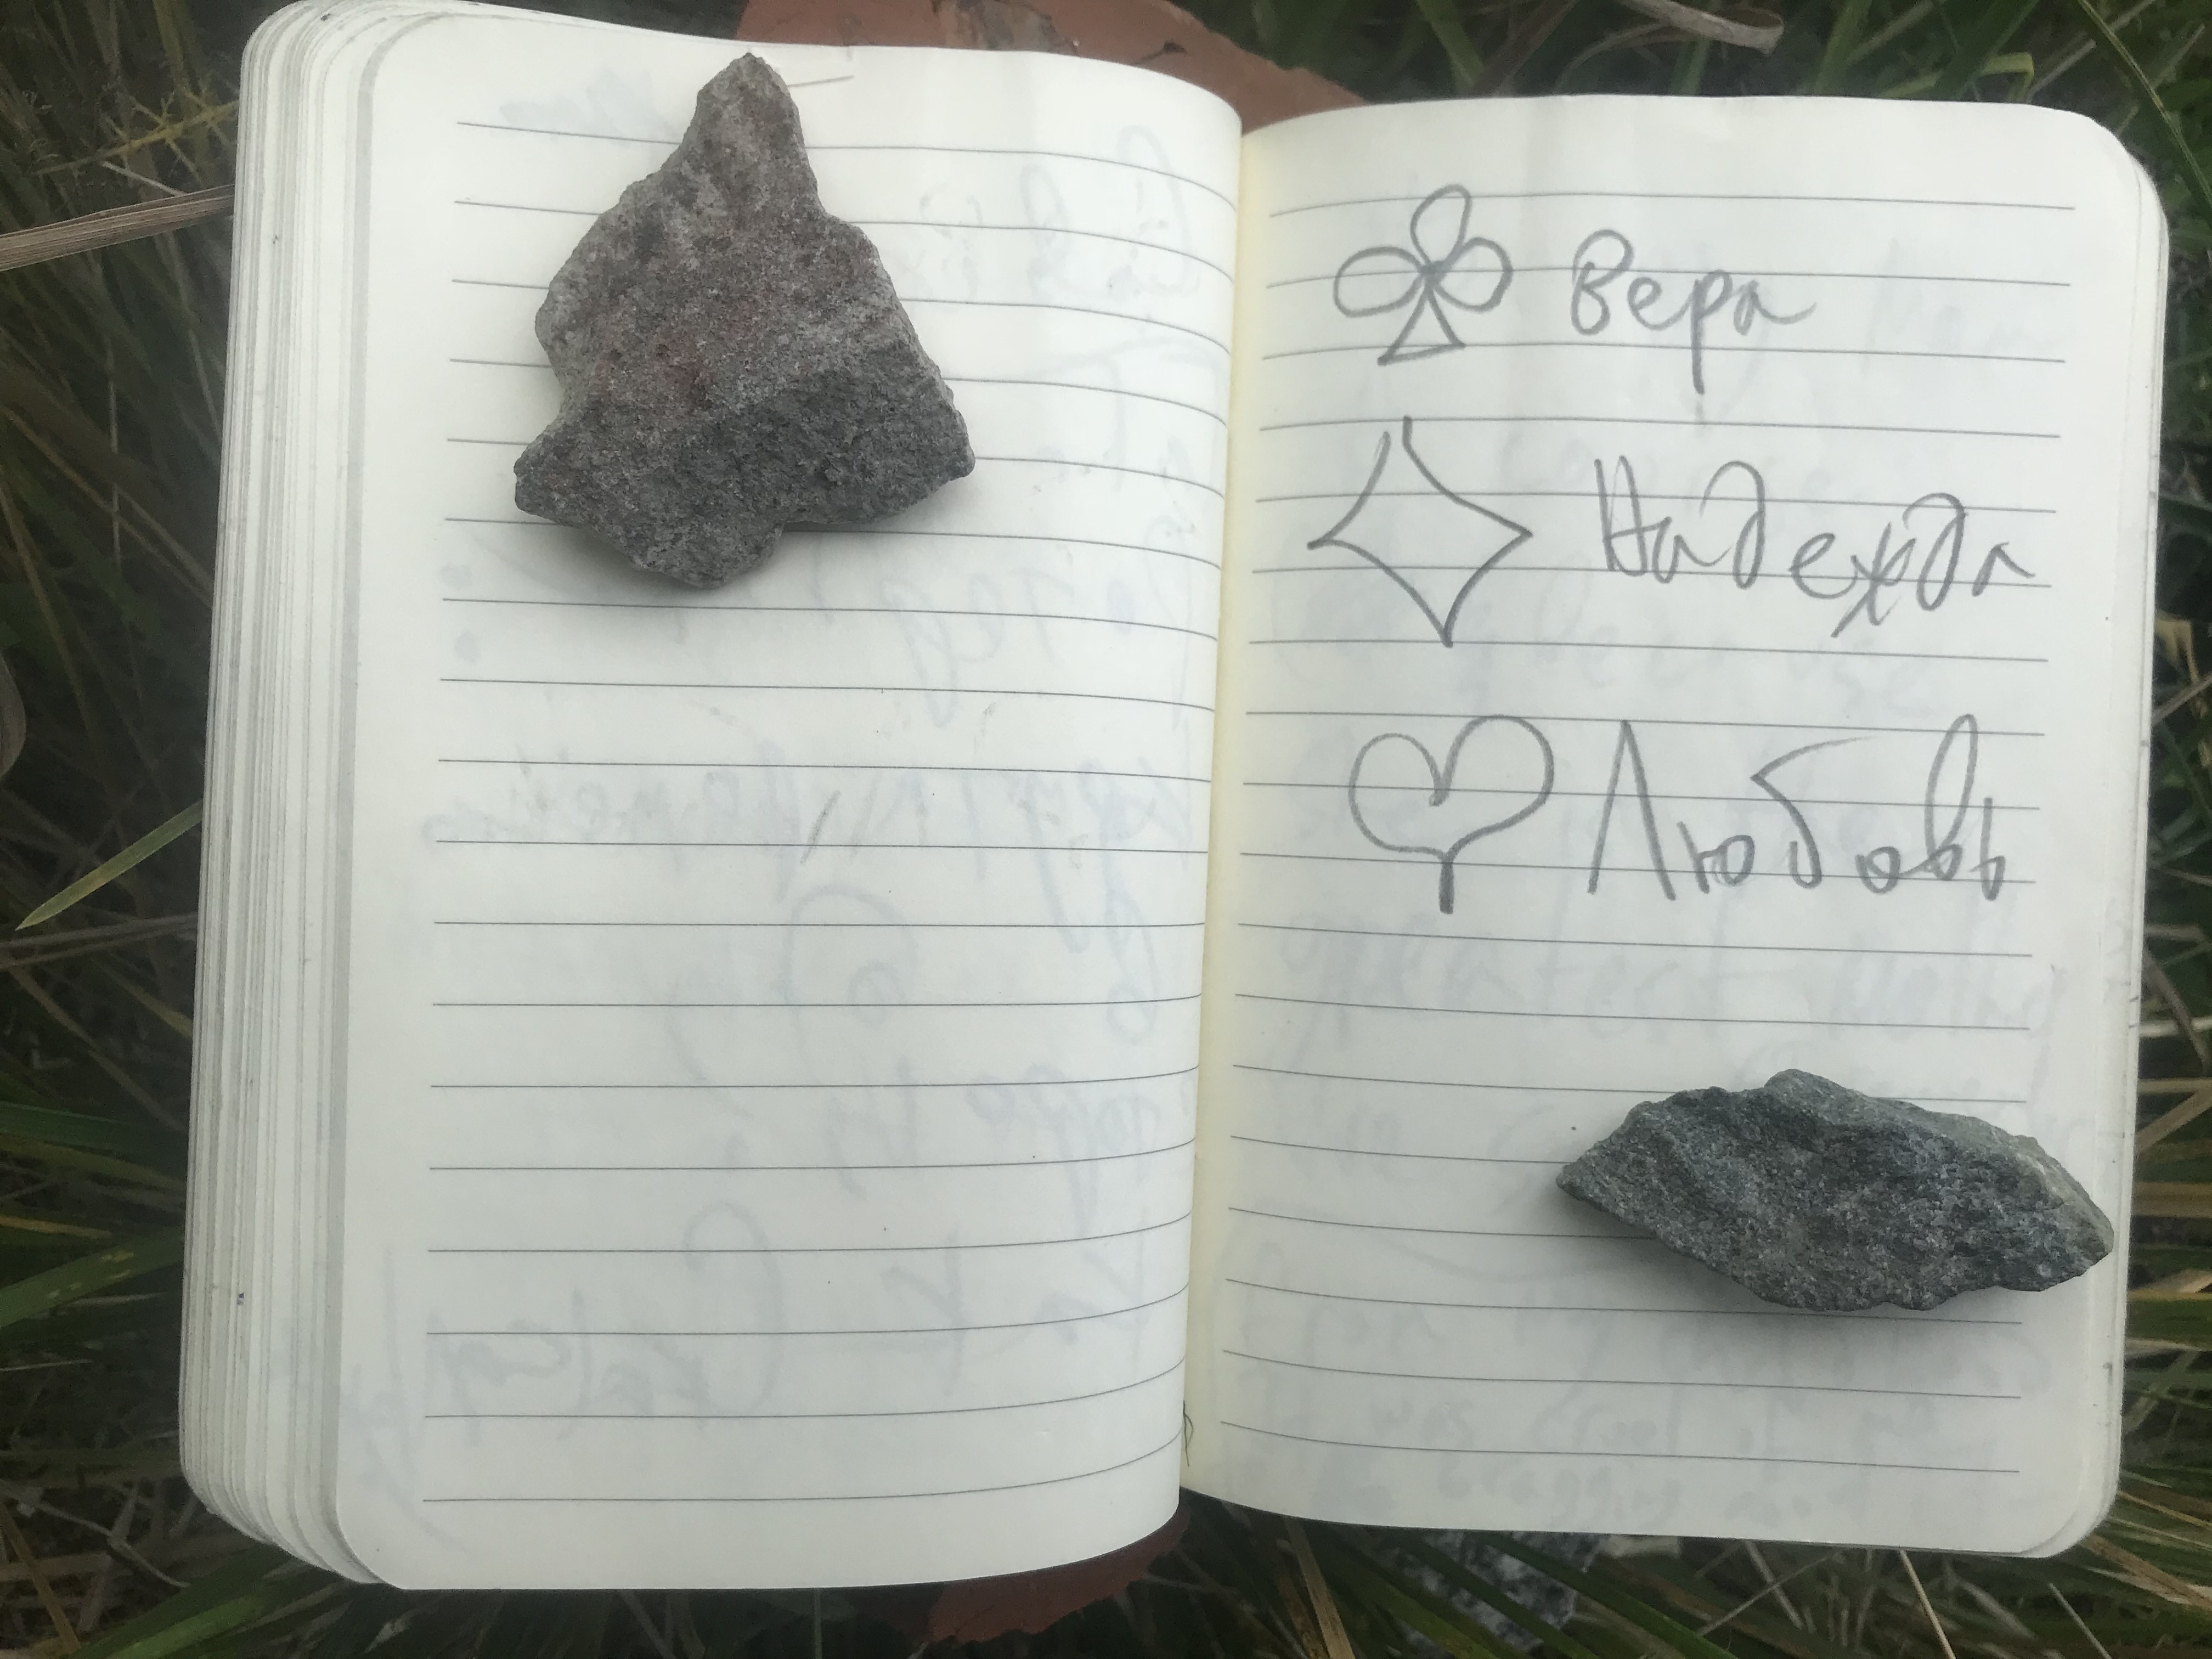 Вера
Надежда
Любовь